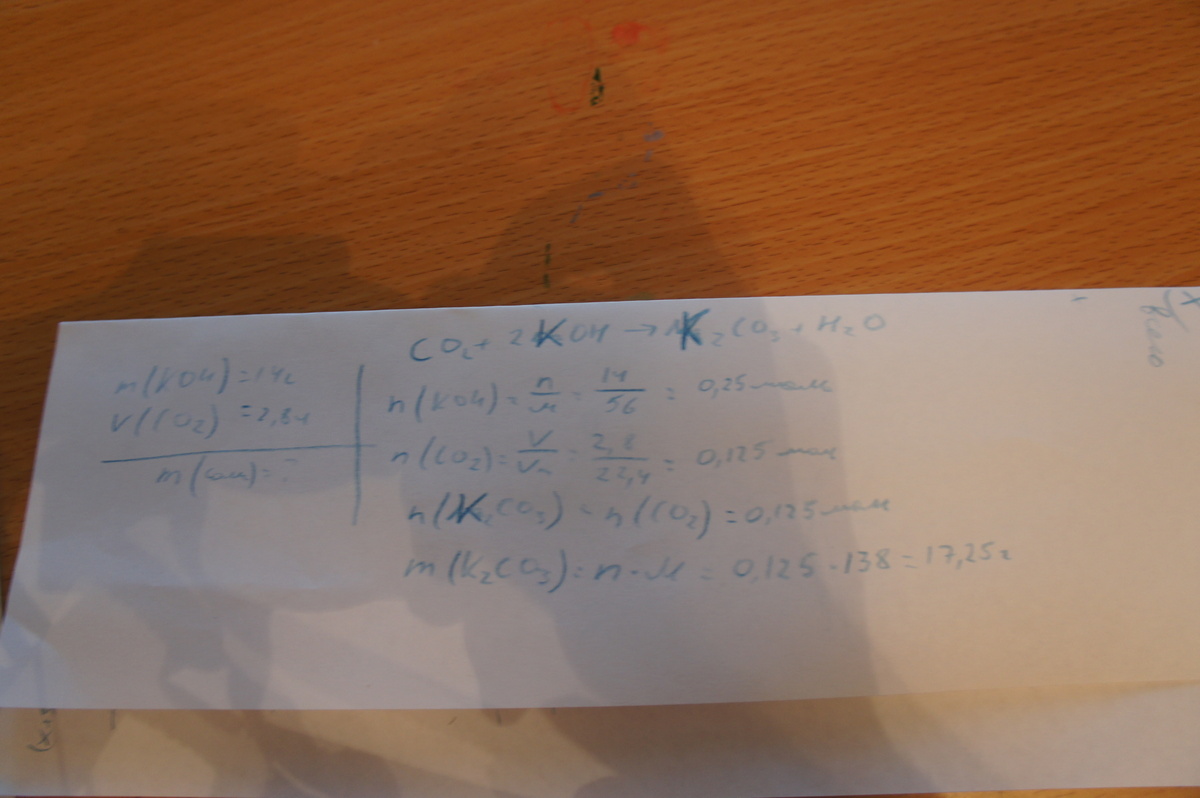 CO₂ + 2KOH → K₂CO₃ + H₂O
m(KOH) = 14г
V(CO₂) = 2,8л
m(соли) = ?
n(KOH) = m/M = 14/56 = 0,25 моль
n(CO₂) = V/Vm = 2,8/22,4 = 0,125 моль
n(K₂CO₃) = n(CO₂) = 0,125 моль
m(K₂CO₃) = n · M = 0,125 · 138 = 17,25г